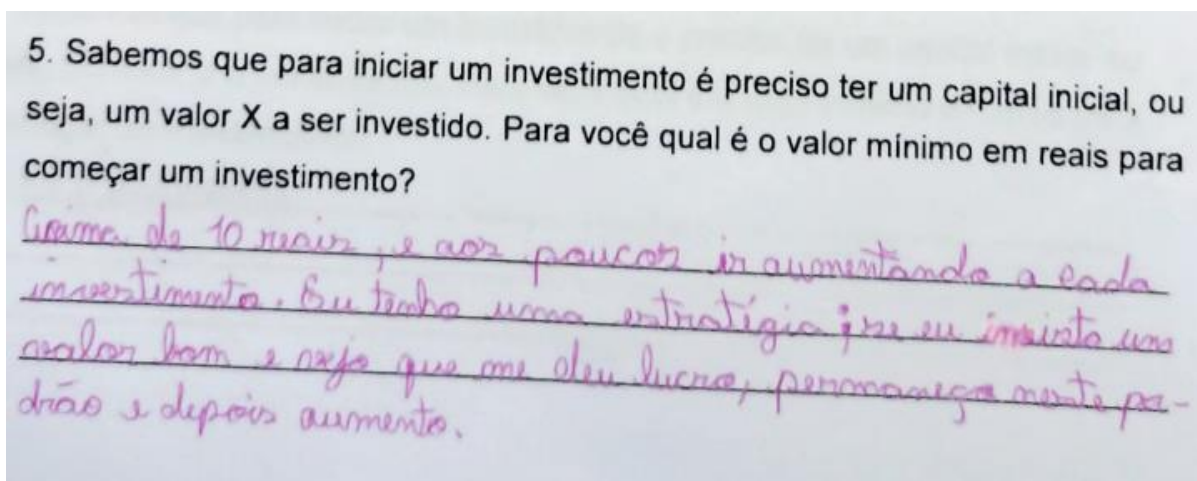 5. Sabemos que para iniciar um investimento é preciso ter um capital inicial, ou
seja, um valor X a ser investido. Para você qual é o valor mínimo em reais para
começar um investimento?
de 10 reais, e aos poucos ir aumentando a cada
investimento. Eu tenho uma estratégia, se eu invisto um
valor bom e vejo que me deu lucro, permaneço neste pa-
drão e depois aumento.